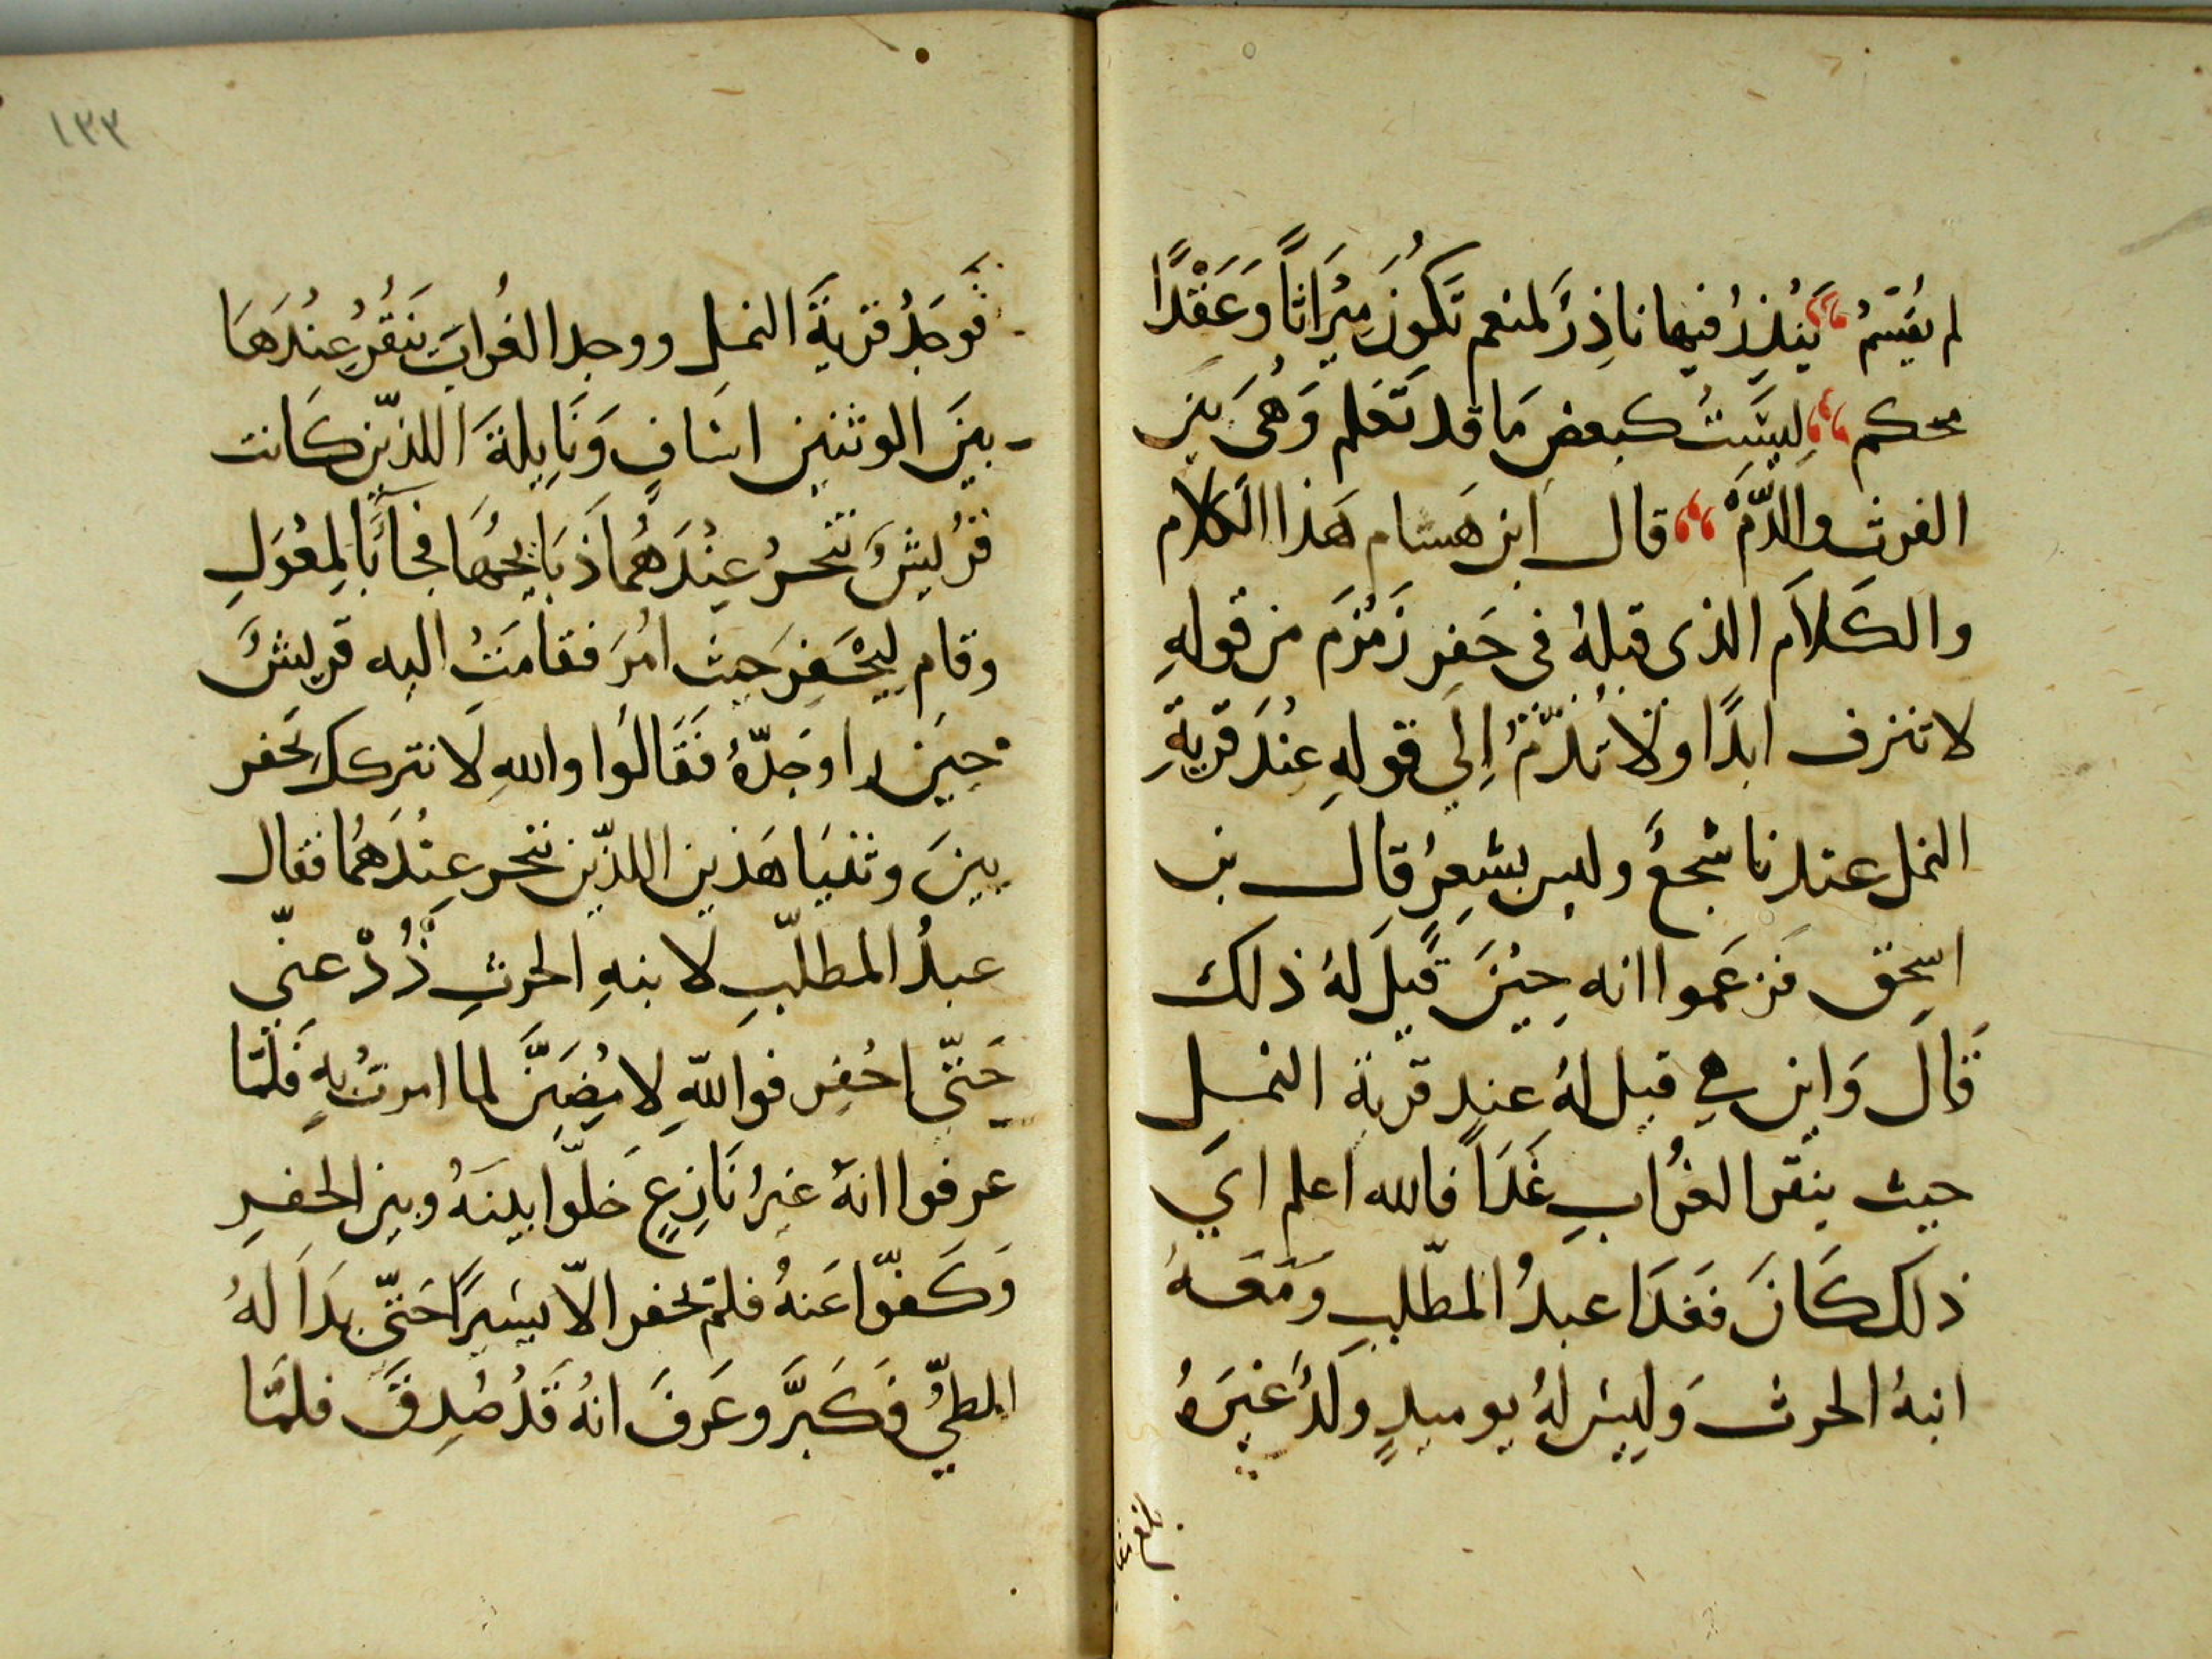 لم يُقسَم يَنْذِرُ فيها ناذِرٌ لمنعم تكُونُ مِيْرَاثًا وَعَقْدًا
محكم ليسَتْ كبعضِ مَا قد تَعْلم وَهْىَ بين
الفرث والدَّمِ قال ابن هشام هَذا الكلام
والكَلاَم الذى قبلهُ فى حَفِر زَمْزَم من قولهِ
لا تنزف ابدًا ولا تُذَمُّ إلى قولهِ عِنْدَ قَريةِ
النمل عندنا سَجعٌ وليس بشِعرٍ قال بن
اسحق فزعَموا انه حِيْنَ قِيلَ لهُ ذلك
قَالَ وَاين هي قيل لهُ عند قرية النمل
حيث ينقر الغُراب غَدَاً فالله اعلم اي
ذلك كَانَ فغَدَا عبدُ المطّلب وَمَعَهُ
ابنهُ الحرث وَليسَ لهُ يوميذٍ وَلَدٌ غَيرَهُ
بلغ
١٣٣
فوَجَدُ قريةَ النمل ووجد الغُرابَ يَنقُرُ عِنْدَهَا
بينَ الوثنين اسَافٍ وَنَايِلةَ اللذَين كَانت
قُريشٌ تَنْحرُ عِنْدَهُمَا ذبَايِحُهَا فجآءَ بالمِعْوَلِ
وقام لِيَحْفِرَ حيث امُرَ فقامَتْ اليه قريشٌ
حِينَ راوجَدّهُ فَقَالُوا واللهِ لا نتركك تحفر
بينَ وثنيَا هَذين اللذَين ننحر عِنْدَهُمَا فقال
عبدُ المطلّبِ لابنهِ الحرثِ ذُدْ عنّى
حَتّى احُفِر فواللهِ لامضِيَنَّ لما امرتُ بهِ فَلمّا
عرفوا انهُ غيرُ نَازِعٍ خلّوا بينَهُ وبين الحفرِ
وَكَفّوا عَنهُ فلم يحفر الّا يسِيرًا حَتّى بدَا لهُ
الطيُّ فكَبَّرَ وعَرفَ انهُ قَدْ صُدِقَ فلمّا